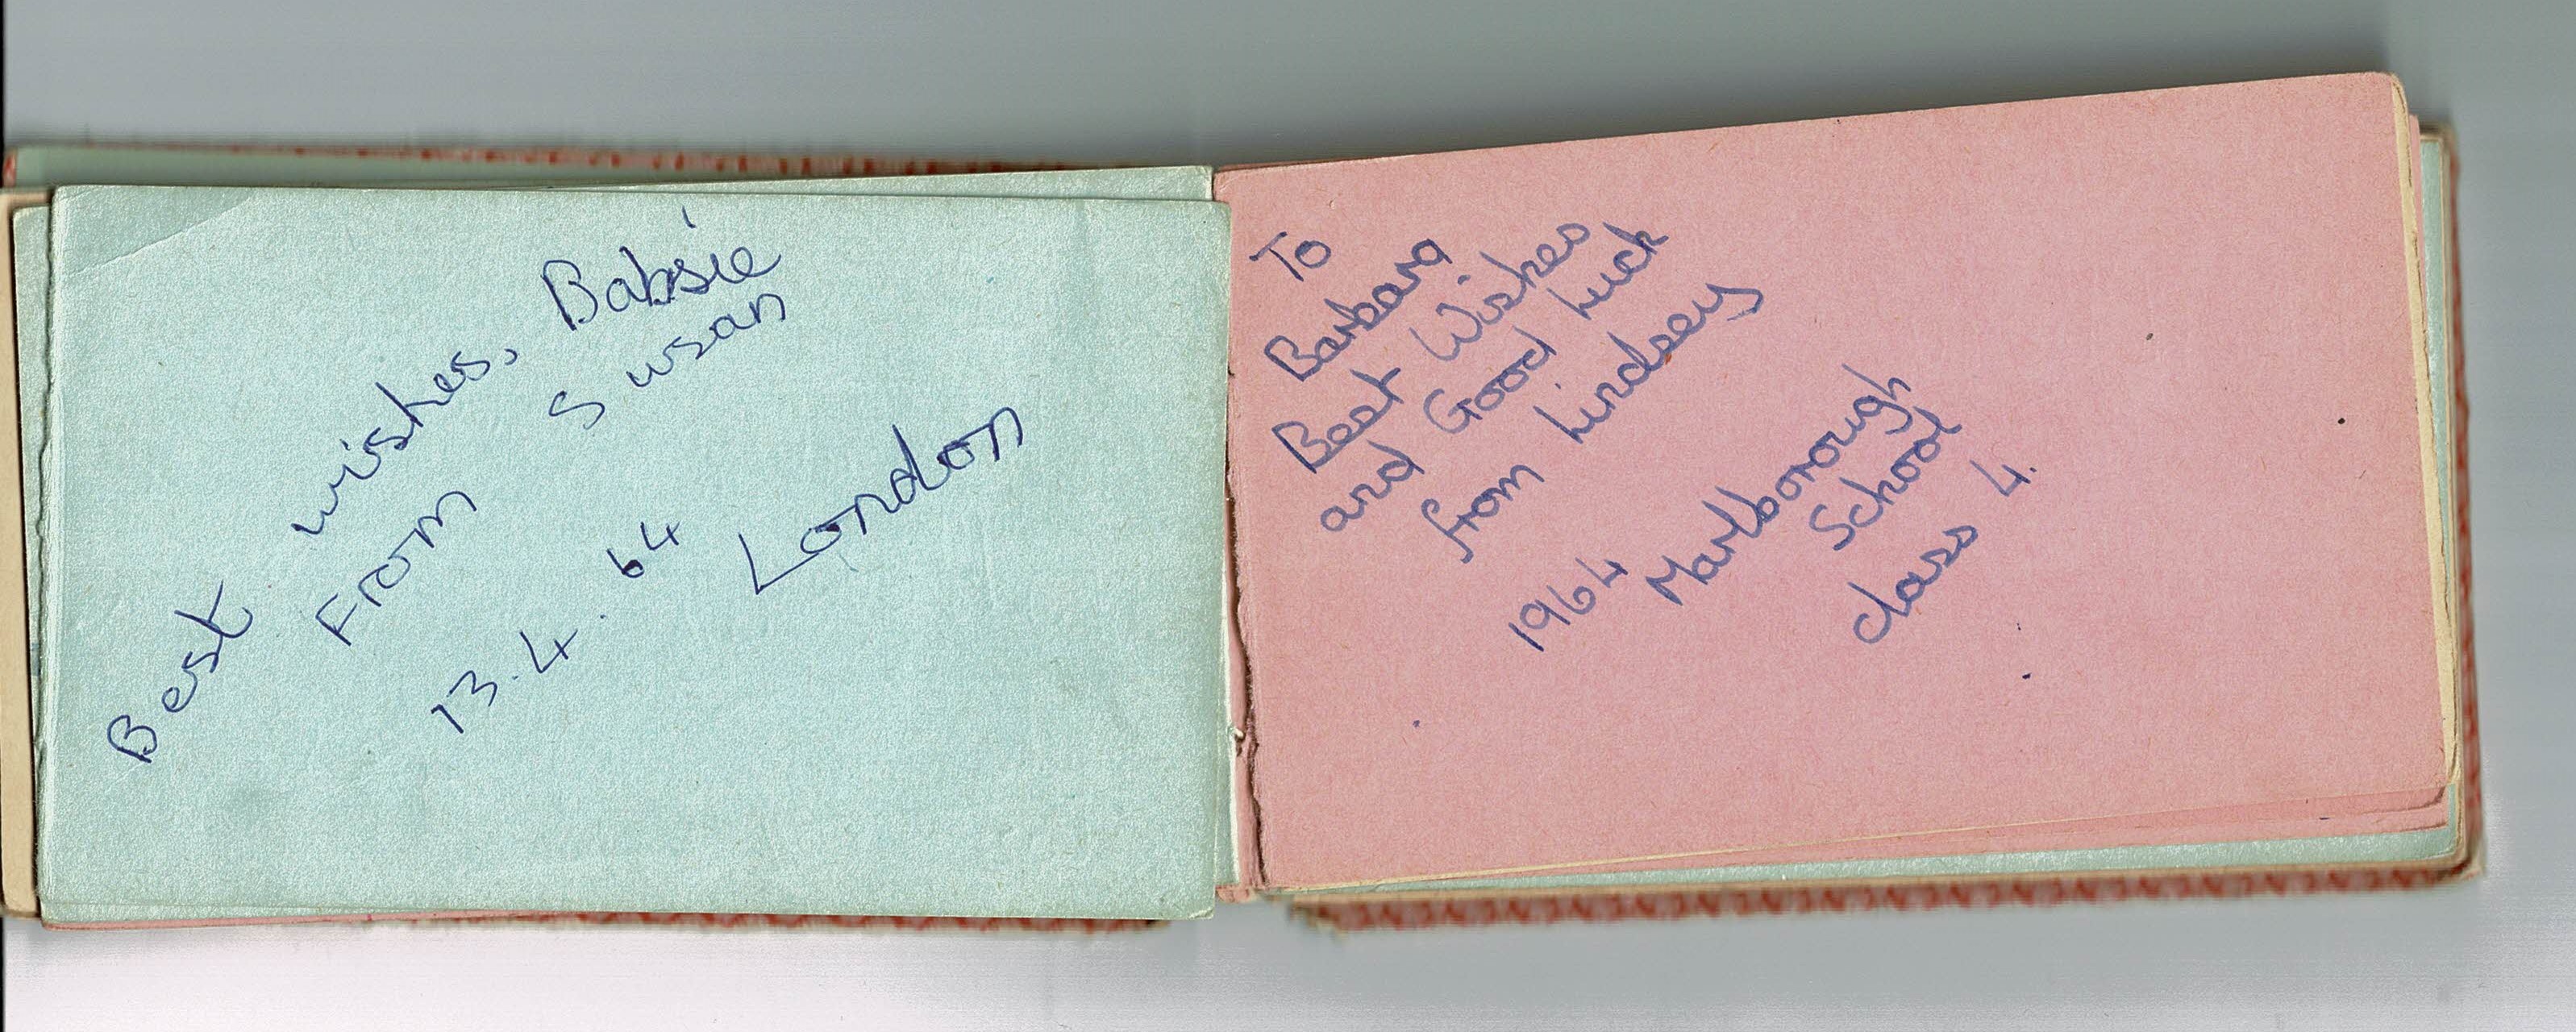 Best wishes, Babsie
From Susan
13.4.64
London
To
Barbara
Best Wishes
and Good Luck
from Lindsey
1964
Marlborough
School
class 4.